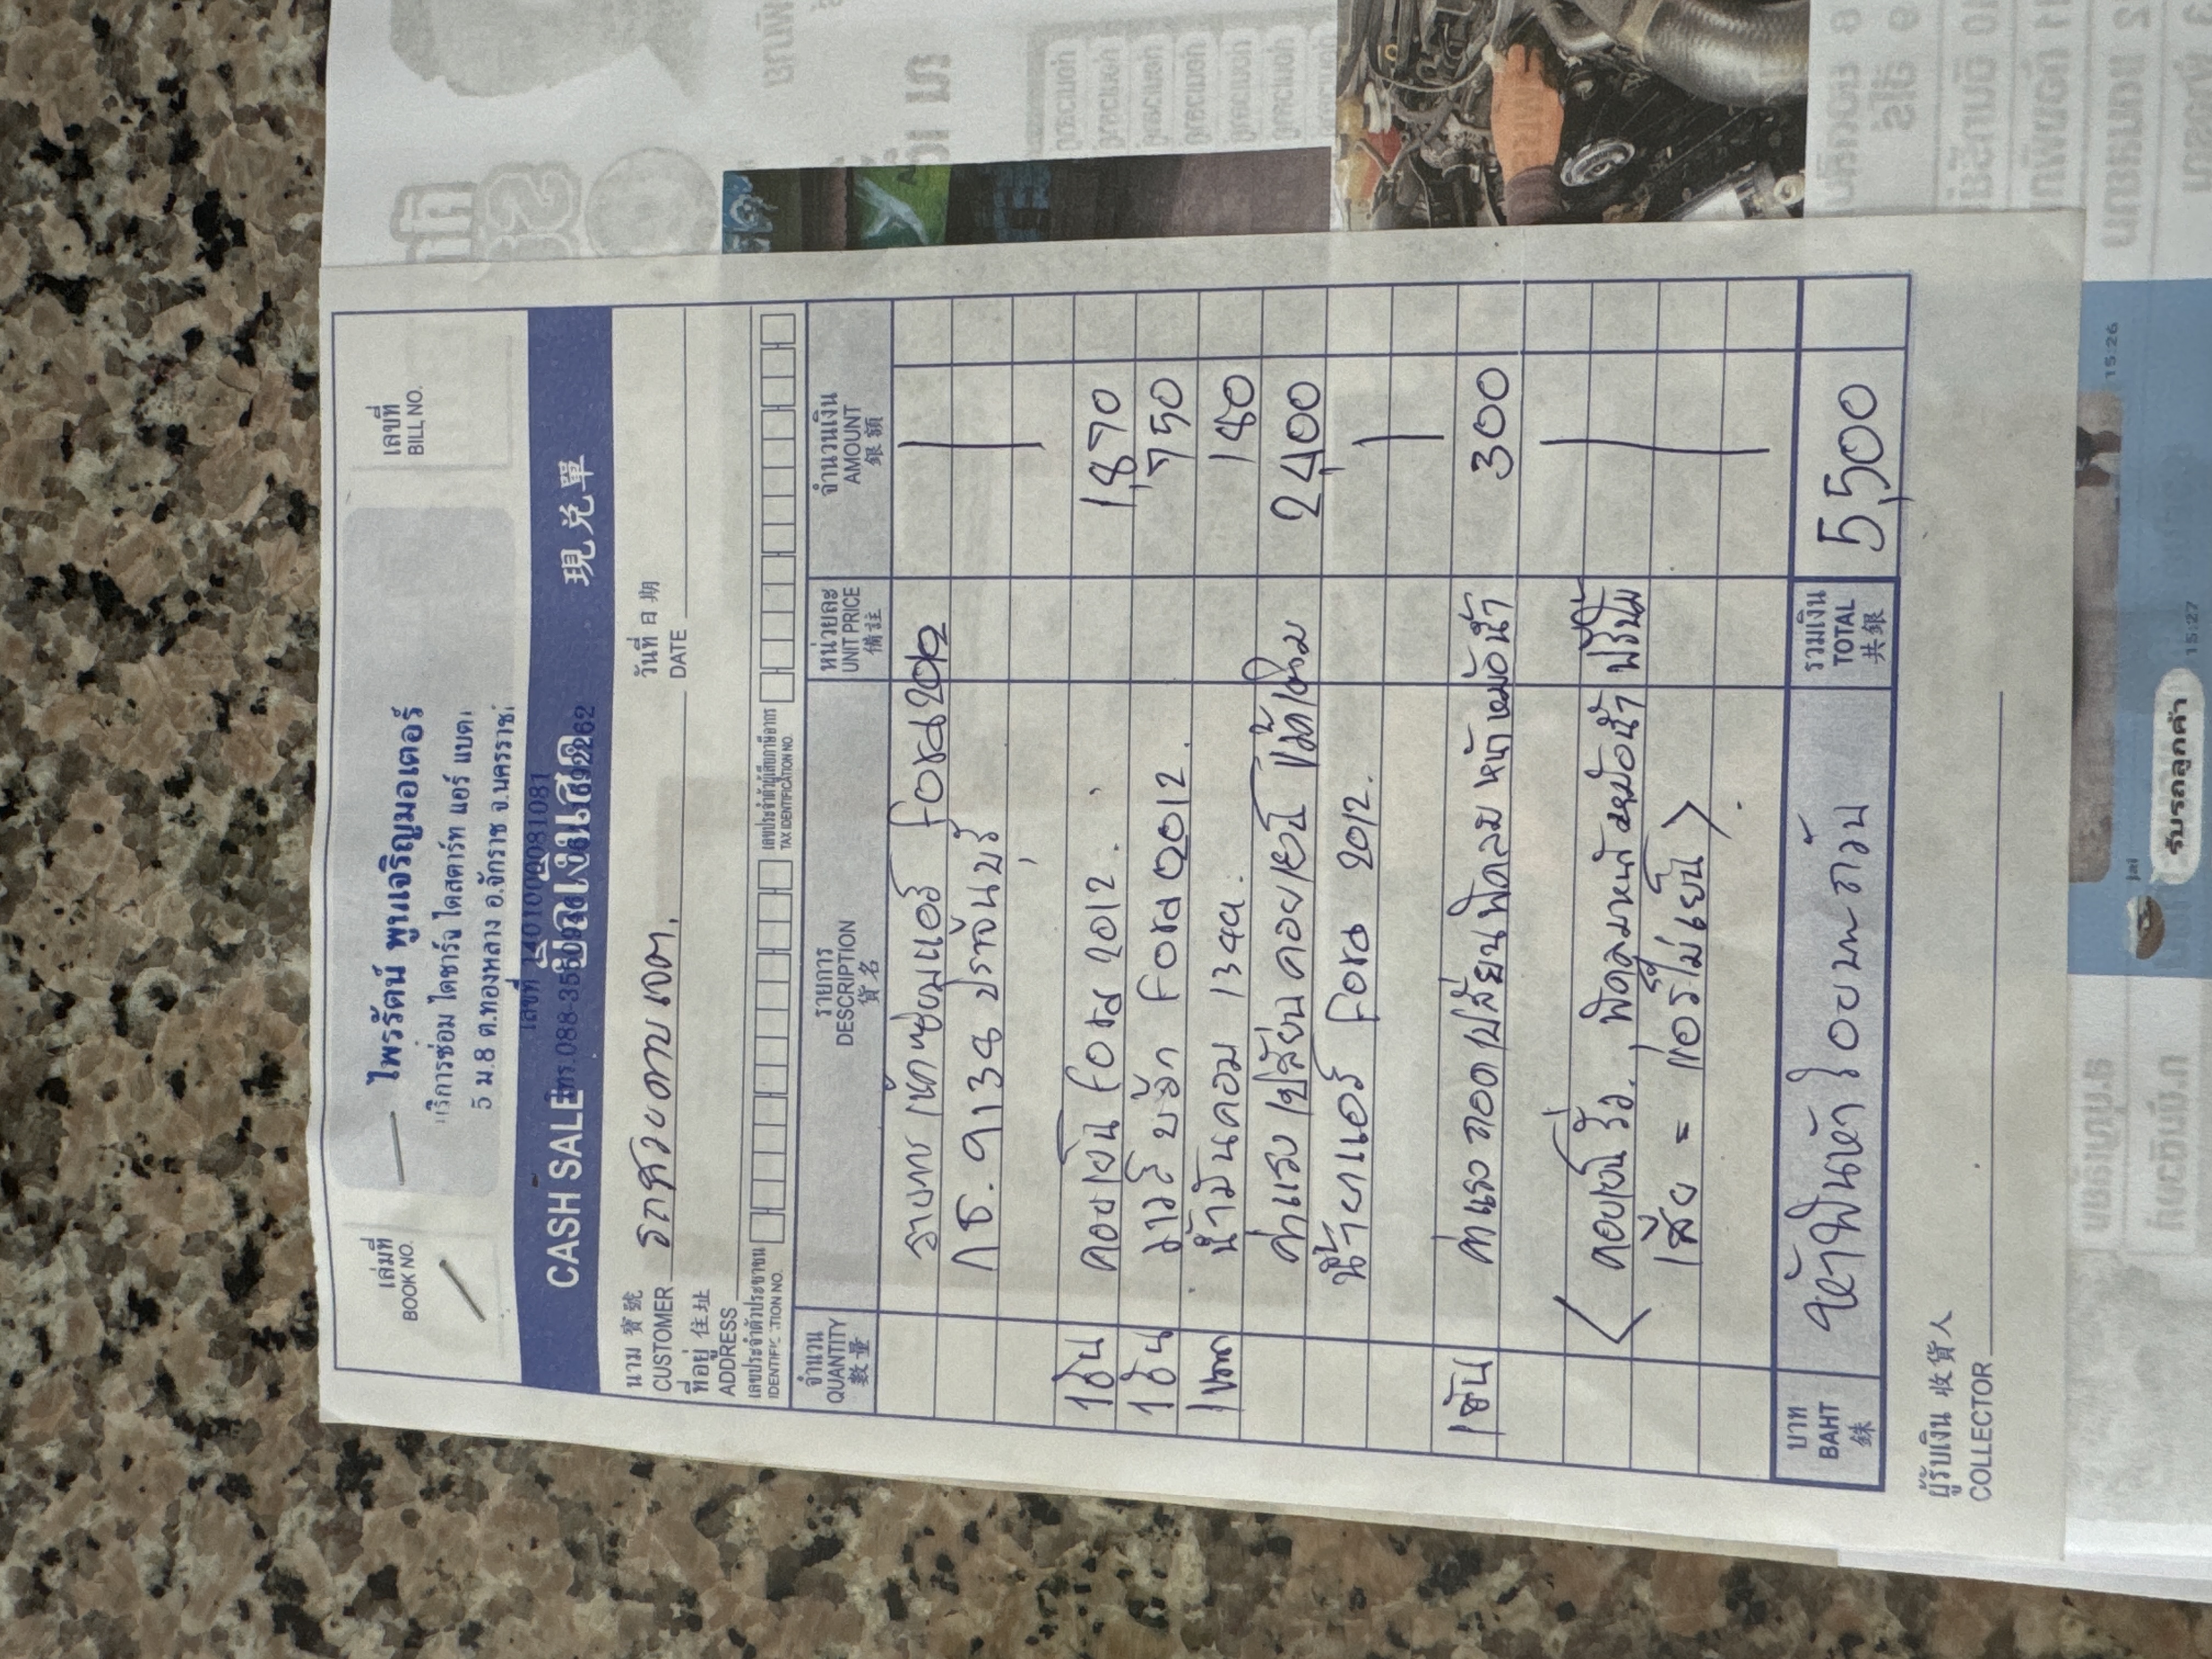 เล่มที่
BOOK NO.
ไพรรัตน์ พูนเจริญมอเตอร์
ริการซ่อม ไดชาร์จ ไดสตาร์ท แอร์ แบต
5 ม.8 ต.ทองหลาง อ.จักราช จ.นครราช
เลขที่
BILL NO.
CASH SALE บิลเงินสด 現兑單
นาม 寶號
CUSTOMER
วันที่ 日期
DATE
ที่อยู่ 住址
ADDRESS
เลขประจำตัวประชาชน
เลขประจำตัวผู้เสียภาษีอากร
TAX IDENTIFICATION NO.
จำนวน
QUANTITY
數量
รายการ
DESCRIPTION
貨名
หน่วยละ
UNIT PRICE
備註
จำนวนเงิน
AMOUNT
銀額
Ford 2012
กธ. 9138 ปราจีนบุรี
คอยเย็น Ford 2012. 1,870
Ford 2012. 750
1 น้ำมันคอม 134a. 180
ค่าแรง เปลี่ยนคอยเย็น 2,400
น้ำยาแอร์ Ford 2012.
ค่าแรง ถอดเปลี่ยนพัดลม หน้าหม้อน้ำ 300
< คอยเย็นรั่ว. พัดลมหน้าหม้อน้ำ
เสีย = แอร์ไม่เย็น >
บาท
BAHT
銖
ห้าพันห้าร้อยบาทถ้วน
รวมเงิน
TOTAL
共銀
5,500
ผู้รับเงิน 收貨人
COLLECTOR
15:26
jai
รับรถลูกค้า
15:27